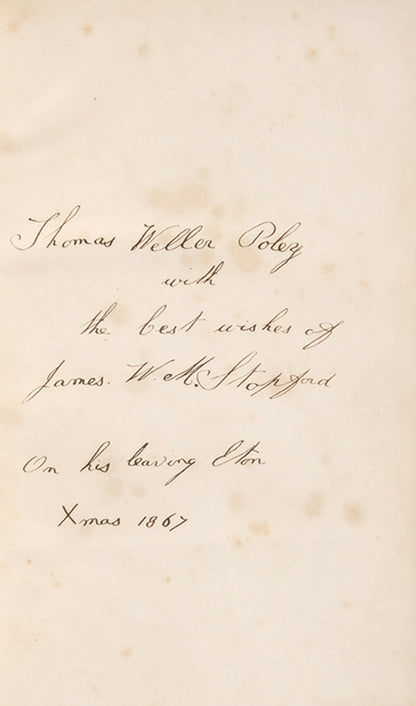 Thomas Weller Poley
with
the best wishes of
James. W. M. Stopford
On his leaving Eton
Xmas 1867